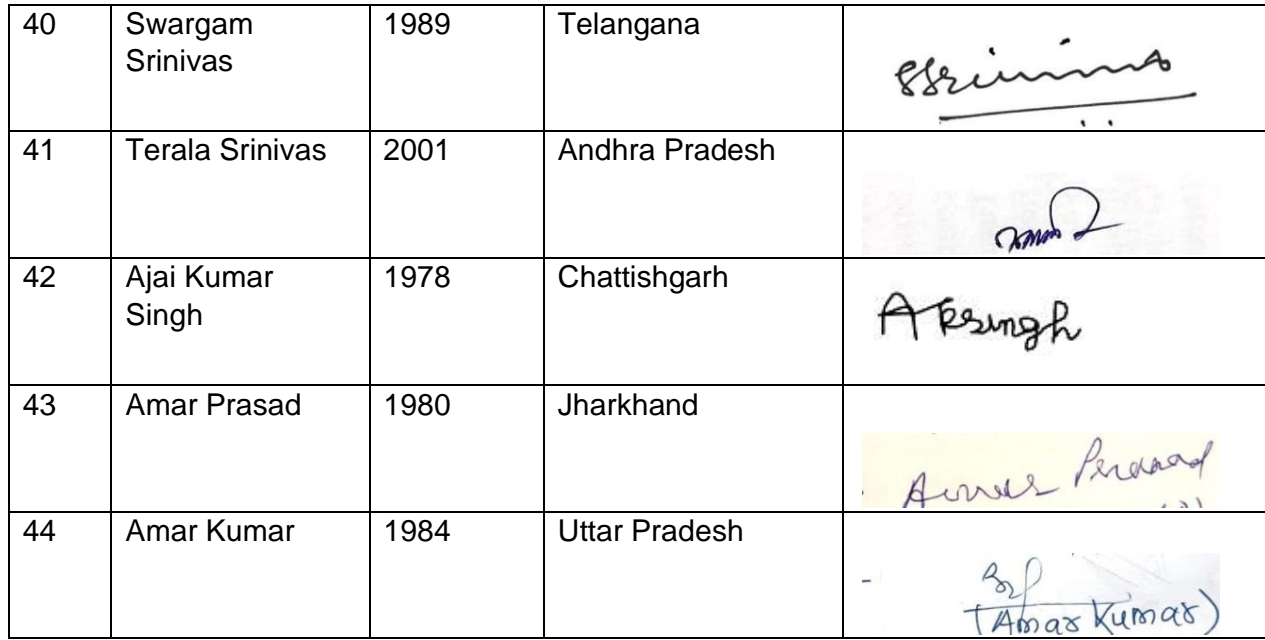 40 Swargam 1989 Telangana
Srinivas
SSrinivas
41 Terala Srinivas 2001 Andhra Pradesh
42 Ajai Kumar 1978 Chattishgarh
Singh
AKSingh
43 Amar Prasad 1980 Jharkhand
Amar Prasad
44 Amar Kumar 1984 Uttar Pradesh
(Amar Kumar)